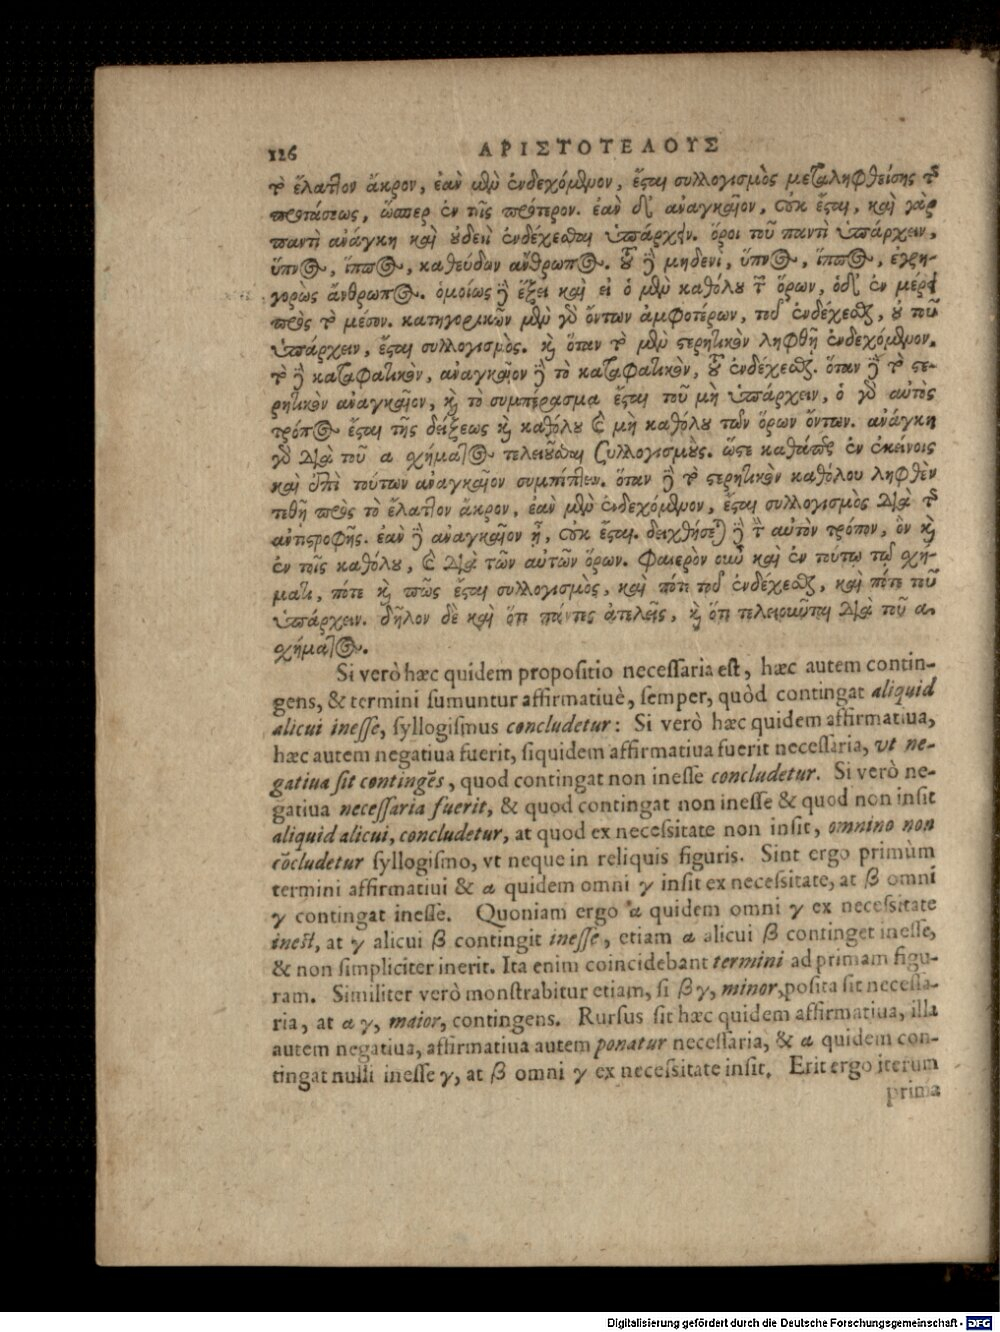 126
ΑΡΙΣΤΟΤΕΛΟΥΣ
τὸ ἔλαττον ἄκρον, ἐὰν μὲν ἐνδεχόμενον, ἔσται συλλογισμὸς μεταληφθείσης τῆς
προτάσεως, ὥσπερ ἐν τοῖς πρότερον. ἐὰν δ' ἀναγκαῖον, οὐκ ἔσται, καὶ γὰρ
παντὶ ἀνάγκη καὶ οὐδενὶ ἐνδέχεσθαι ὑπάρχειν. ὅροι τοῦ παντὶ ὑπάρχειν,
ὕπνος, ἵππος, καθεύδων ἄνθρωπος. τοῦ δὲ μηδενὶ, ὕπνος, ἵππος, ἐγρη-
γορὼς ἄνθρωπος. ὁμοίως δὲ ἕξει καὶ εἰ ὁ μὲν καθόλου τῶν ὅρων, ὁ δ' ἐν μέρει
πρὸς τὸ μέσον. κατηγορικῶν μὲν γὰρ ὄντων ἀμφοτέρων, τοῦ ἐνδέχεσθαι, οὐ τοῦ
ὑπάρχειν, ἔσται συλλογισμός. καὶ ὅταν τὸ μὲν στερητικὸν ληφθῇ ἐνδεχόμενον,
τὸ δὲ καταφατικὸν, ἀναγκαῖον δὲ τὸ καταφατικὸν, τοῦ ἐνδέχεσθαι. ὅταν δὲ τὸ στε-
ρητικὸν ἀναγκαῖον, καὶ τὸ συμπέρασμα ἔσται τοῦ μὴ ὑπάρχειν, ὁ γὰρ αὐτὸς
τρόπος ἔσται τῆς δείξεως καὶ καθόλου καὶ μὴ καθόλου τῶν ὅρων ὄντων. ἀνάγκη
γὰρ διὰ τοῦ α σχήματος τελειοῦσθαι συλλογισμούς. ὥστε καθάπερ ἐν ἐκείνοις
καὶ ἐπὶ τούτων ἀναγκαῖον συμπίπτειν. ὅταν δὲ τὸ στερητικὸν καθόλου ληφθὲν
τεθῇ πρὸς τὸ ἔλαττον ἄκρον, ἐὰν μὲν ἐνδεχόμενον, ἔσται συλλογισμὸς διὰ τῆς
ἀντιστροφῆς. ἐὰν δὲ ἀναγκαῖον ᾖ, οὐκ ἔσται. δειχθήσεται δὲ τὸν αὐτὸν τρόπον, ὃν καὶ
ἐν τοῖς καθόλου, καὶ διὰ τῶν αὐτῶν ὅρων. Φανερὸν οὖν καὶ ἐν τούτῳ τῷ σχή-
ματι, πότε καὶ πῶς ἔσται συλλογισμὸς, καὶ πότε τοῦ ἐνδέχεσθαι, καὶ πότε τοῦ
ὑπάρχειν. δῆλον δὲ καὶ ὅτι πάντες ἀτελεῖς, καὶ ὅτι τελειοῦνται διὰ τοῦ α
σχήματος.
Si verò hæc quidem propositio necessaria est, hæc autem contin-
gens, & termini sumuntur affirmatiuè, semper, quòd contingat aliquid
alicui inesse, syllogismus concludetur: Si verò hæc quidem affirmatiua,
hæc autem negatiua fuerit, siquidem affirmatiua fuerit necessaria, vt ne-
gatiua sit contingẽs, quod contingat non inesse concludetur. Si verò ne-
gatiua necessaria fuerit, & quod contingat non inesse & quod non insit
aliquid alicui, concludetur, at quod ex necessitate non insit, omnino non
cõcludetur syllogismo, vt neque in reliquis figuris. Sint ergo primùm
termini affirmatiui & α quidem omni γ insit ex necessitate, at β omni
γ contingat inesse. Quoniam ergo α quidem omni γ ex necessitate
inest, at γ alicui β contingit inesse, etiam α alicui β continget inesse,
& non simpliciter inerit. Ita enim coincidebant termini ad primam figu-
ram. Similiter verò monstrabitur etiam, si β γ, minor, posita sit necessa-
ria, at α γ, maior, contingens. Rursus sit hæc quidem affirmatiua, illa
autem negatiua, affirmatiua autem ponatur necessaria, & α quidem con-
tingat nulli inesse γ, at β omni γ ex necessitate insit. Erit ergo iterum
prima
Digitalisierung gefördert durch die Deutsche Forschungsgemeinschaft - DFG